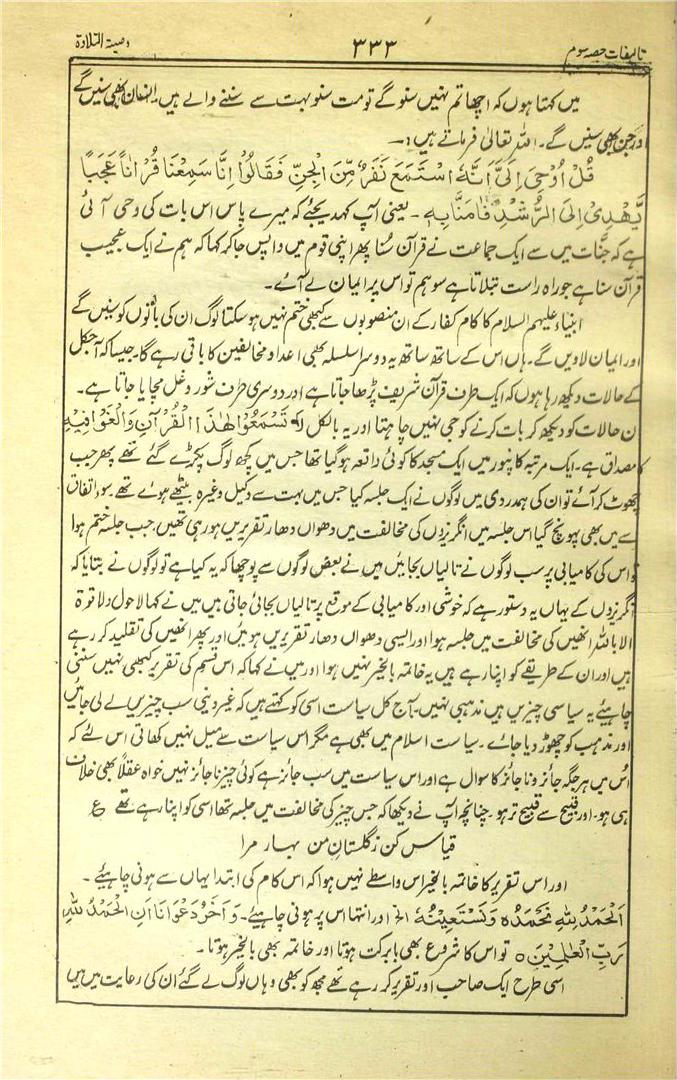 تالیفات حصہ سوم ۳۳۳ وصیۃ التلاوۃ
میں کہتا ہوں کہ اچھا تم نہیں سنو گے تو مت سنو بہت سے سننے والے ہیں انسان بھی سنیں گے
اور جن بھی سنیں گے۔ اللہ تعالیٰ فرماتے ہیں:۔
قُلْ اُوْحِیَ اِلَیَّ اَنَّهُ اسْتَمَعَ نَفَرٌ مِّنَ الْجِنِّ فَقَالُوْا اِنَّا سَمِعْنَا قُرْاٰناً عَجَباً
یَّهْدِیْ اِلَی الرُّشْدِ فَاٰمَنَّا بِهٖ۔ یعنی آپ کہدیجئے کہ میرے پاس اس بات کی وحی آئی
ہے کہ جنّات میں سے ایک جماعت نے قرآن سُنا پھر اپنی قوم میں واپس جاکر کہا کہ ہم نے ایک عجیب
قرآن سنا ہے جو راہ راست بتلاتا ہے سو ہم تو اس پر ایمان لے آئے۔
ابنیاء علیہم السلام کا کام کفار کے ان منصوبوں سے کبھی ختم نہیں ہو سکتا لوگ ان کی باتوں کو سنیں گے
اور ایمان لاویں گے۔ ہاں اس کے ساتھ ساتھ یہ دوسرا سلسلہ بھی اعدا و مخالفین کا باقی رہے گا۔ جیسا کہ آجکل
کے حالات دیکھ رہا ہوں کہ ایک طرف قرآن شریف پڑھا جاتا ہے اور دوسری طرف شور و غل مچایا جاتا ہے۔
ان حالات کو دیکھ کر بات کرنے کو جی نہیں چاہتا اور یہ بالکل لَا تَسْمَعُوْا لِهٰذَا الْقُرْآنِ وَالْغَوْا فِیْهِ
کا مصداق ہے۔ ایک مرتبہ کانپور میں ایک مسجد کا کوئی واقعہ ہوگیا تھا جس میں کچھ لوگ پکڑے گئے تھے پھر جب
چھوٹ کر آئے تو ان کی ہمدردی میں لوگوں نے ایک جلسہ کیا جس میں بہت سے وکیل وغیرہ بیٹھے ہوئے تھے۔ سوء اتفاق
سے میں بھی پہونچ گیا اس جلسہ میں انگریزوں کی مخالفت میں دھواں دھار تقریریں ہو رہی تھیں، جب جلسہ ختم ہوا
تو اس کی کامیابی پر سب لوگوں نے تالیاں بجائیں میں نے بعض لوگوں سے پوچھا کہ یہ کیا ہے تو لوگوں نے بتایا کہ
انگریزوں کے یہاں یہ دستور ہے کہ خوشی اور کامیابی کے موقع پر تالیاں بجائی جاتی ہیں میں نے کہا لا حول ولا قوۃ
الا باللہ انھیں کی مخالفت میں جلسہ ہوا اور ایسی دھواں دھار تقریریں ہوئیں اور پھر انھیں کی تقلید کر رہے
ہیں اور ان کے طریقے کو اپنا رہے ہیں یہ خاتمہ بالخیر نہیں ہوا اور میں نے کہا کہ اس قسم کی تقریر کبھی نہیں سننی
چاہیئے یہ سیاسی چیزیں ہیں مذہبی نہیں۔ آج کل سیاست اسی کو کہتے ہیں کہ غیر دینی سب چیزیں لے لی جائیں
اور مذہب کو چھوڑ دیا جائے۔ سیاست اسلام میں بھی ہے مگر اس سیاست سے میل نہیں کھاتی اس لئے کہ
اُس میں ہر جگہ جائز و ناجائز کا سوال ہے اور اس سیاست میں سب جائز ہے کوئی چیز نا جائز نہیں خواہ عقلاً بھی خلاف
ہی ہو۔ اور قبیح سے قبیح تر ہو۔ چنانچہ آپ نے دیکھا کہ جس چیز کی مخالفت میں جلسہ تھا اسی کو اپنا رہے تھے ع
قیاس کن ز گلستانِ من بہار مرا
اور اس تقریر کا خاتمہ بالخیر اس واسطے نہیں ہوا کہ اس کام کی ابتدا یہاں سے ہونی چاہئے۔
اَلْحَمْدُ لِلّٰهِ نَحْمَدُهٗ وَنَسْتَعِیْنُهٗ الخ اور انتہا اس پر ہونی چاہئے۔ وَ آخِرُ دَعْوَانَا اَنِ الْحَمْدُ لِلّٰهِ
رَبِّ الْعٰلَمِیْنَ ہ تو اس کا شروع بھی بابرکت ہوتا اور خاتمہ بھی بالخیر ہوتا۔
اسی طرح ایک صاحب اور تقریر کر رہے تھے مجھ کو بھی وہاں لوگ لے گئے ان کی رعایت میں میں